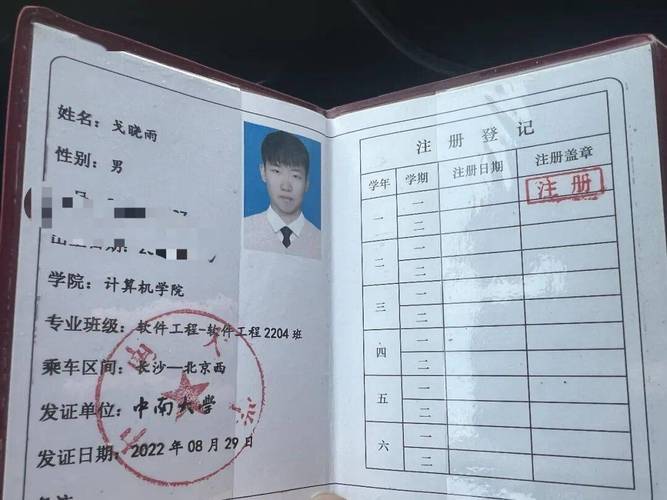 姓名：戈晓雨
性别：男
学院：计算机学院
专业班级：软件工程-软件工程2204班
乘车区间：长沙—北京西
发证单位：中南大学
发证日期：2022年08月29日
注册登记
学年 学期 注册日期 注册盖章
一 一 注册
二
二 一
二
三 一
二
四 一
二
五 一
二
六 一
二